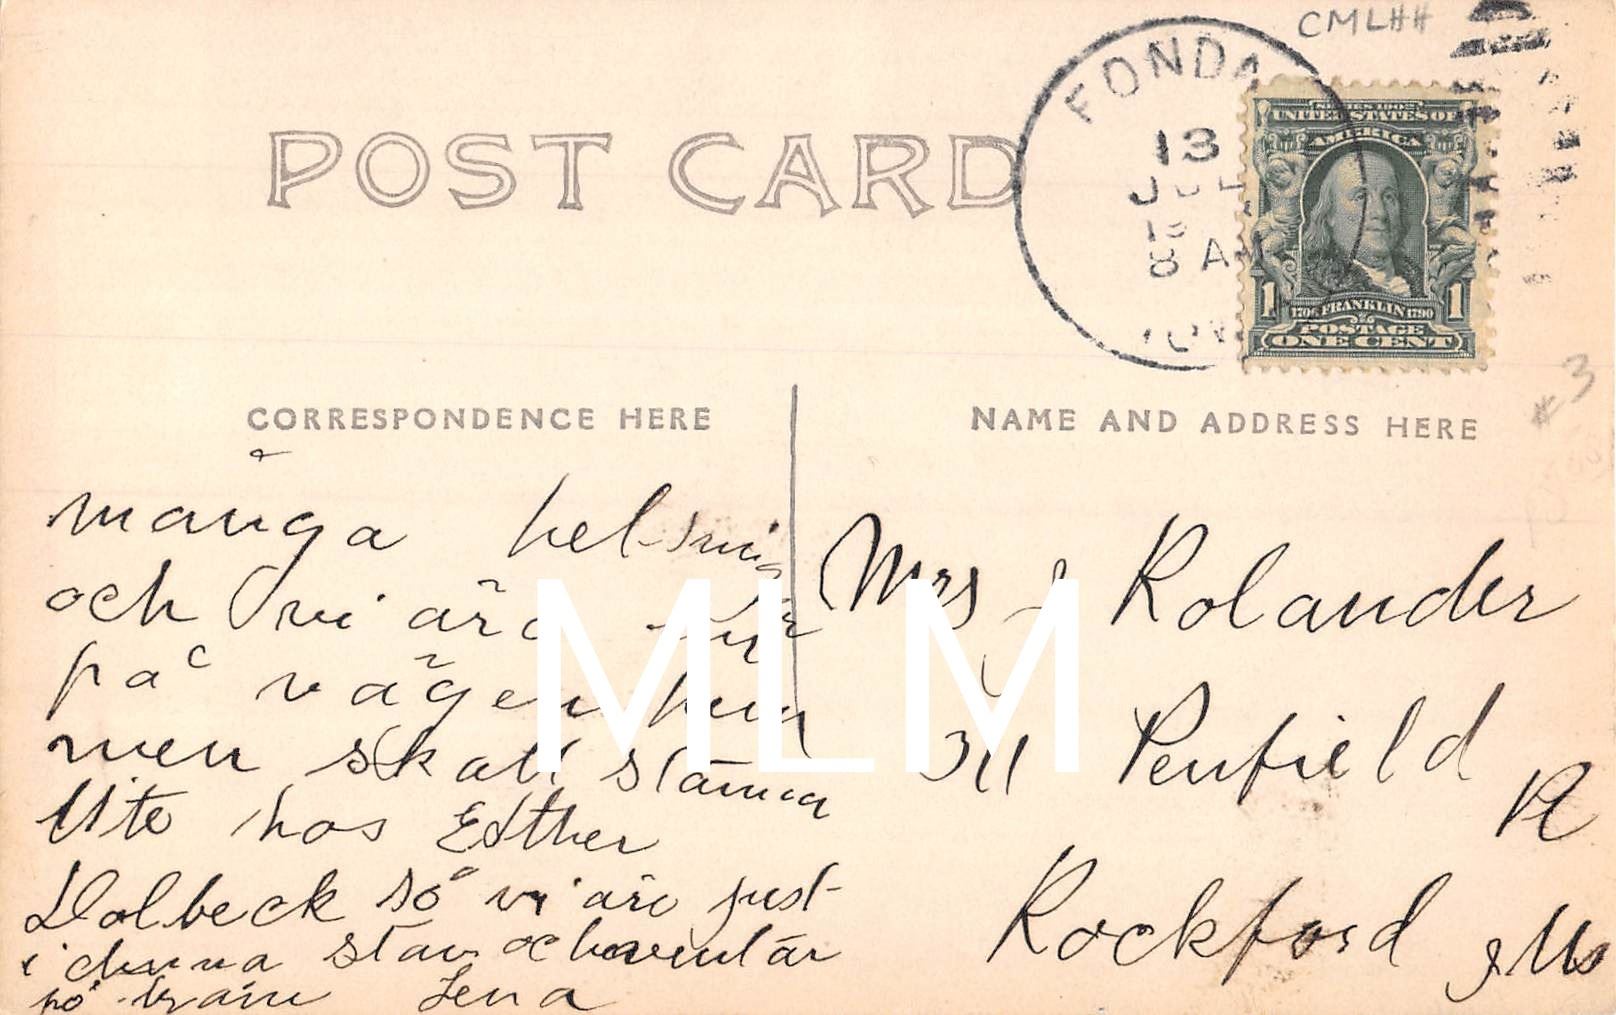 CMLHH
POST CARD
FONDA
13
JUL
8 AM
IOW
SERIES 1902
UNITED STATES OF
AMERICA
1 1
1706 FRANKLIN 1790
POSTAGE
ONE CENT
#3
CORRESPONDENCE HERE
NAME AND ADDRESS HERE
många
och vi äro
på vägen hem
men skall stanna
lite hos Esther
Dolbeck så vi äro just
i denna stan och
på train Lena
Mrs J Rolander
311 Penfield
Pl
Rockford Ills
MLM